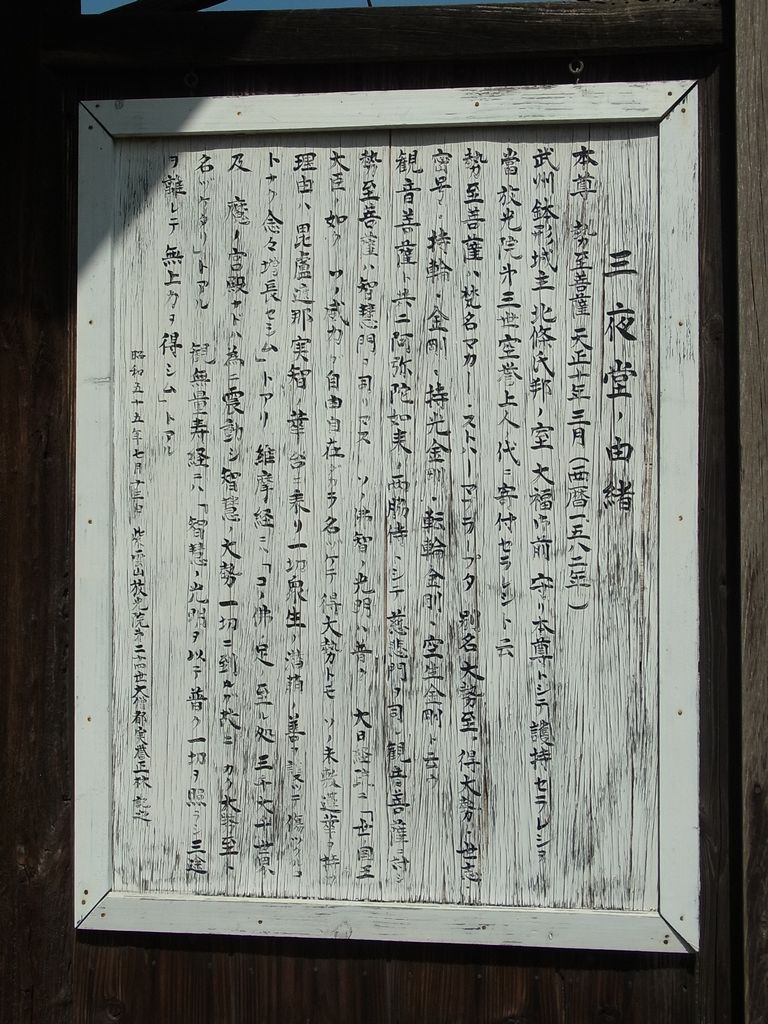 三夜堂ノ由緒
本尊 勢至菩薩 天正十年三月(西暦一五八二年)
武州鉢形城主 北條氏邦ノ室 大福御前 守リ本尊トシテ護持セラレシヲ
當放光院第三世空誉上人代ニ寄付セラレシト云
勢至菩薩ハ梵名マカー・ストハーマプラープタ 別名大勢至・得大勢・世志
密号ヲ持輪・金剛・持光金剛・転輪金剛・空生金剛ト云ウ
観音菩薩ト共ニ阿弥陀如来ノ両脇侍トシテ 慈悲門ヲ司ル観音菩薩ニ対シ
勢至菩薩ハ智慧門ヲ司リマス ソノ佛智ノ光明ハ普ク 大日経疏ニ「世國王
大臣ノ如ク ソノ威力ヲ自由自在ダカラ名ヅケテ得大勢トモ ソノ未敷蓮華ヲ持ツ
理由ハ 毘盧遮那実智ノ華台ニ乗リ一切衆生ノ 善 傷ツクルコ
トナク念々増長セシム」トアリ 維摩経ニハ「コノ佛ノ足 至ル処 三千大千世界
及 魔ノ宮殿ナドハ為ニ震動シ智慧ノ大勢一切ニ到ルガ故ニ カク大勢至ト
名ヅケタリ」トアル 観無量寿経ニハ「智慧ノ光明ヲ以テ普ク一切ヲ照ラシ三途
ヲ離レテ無上力ヲ得シム」トアル
昭和五十五年七月十三日 紫雲山放光院第二十四世大僧都実誉正林記之